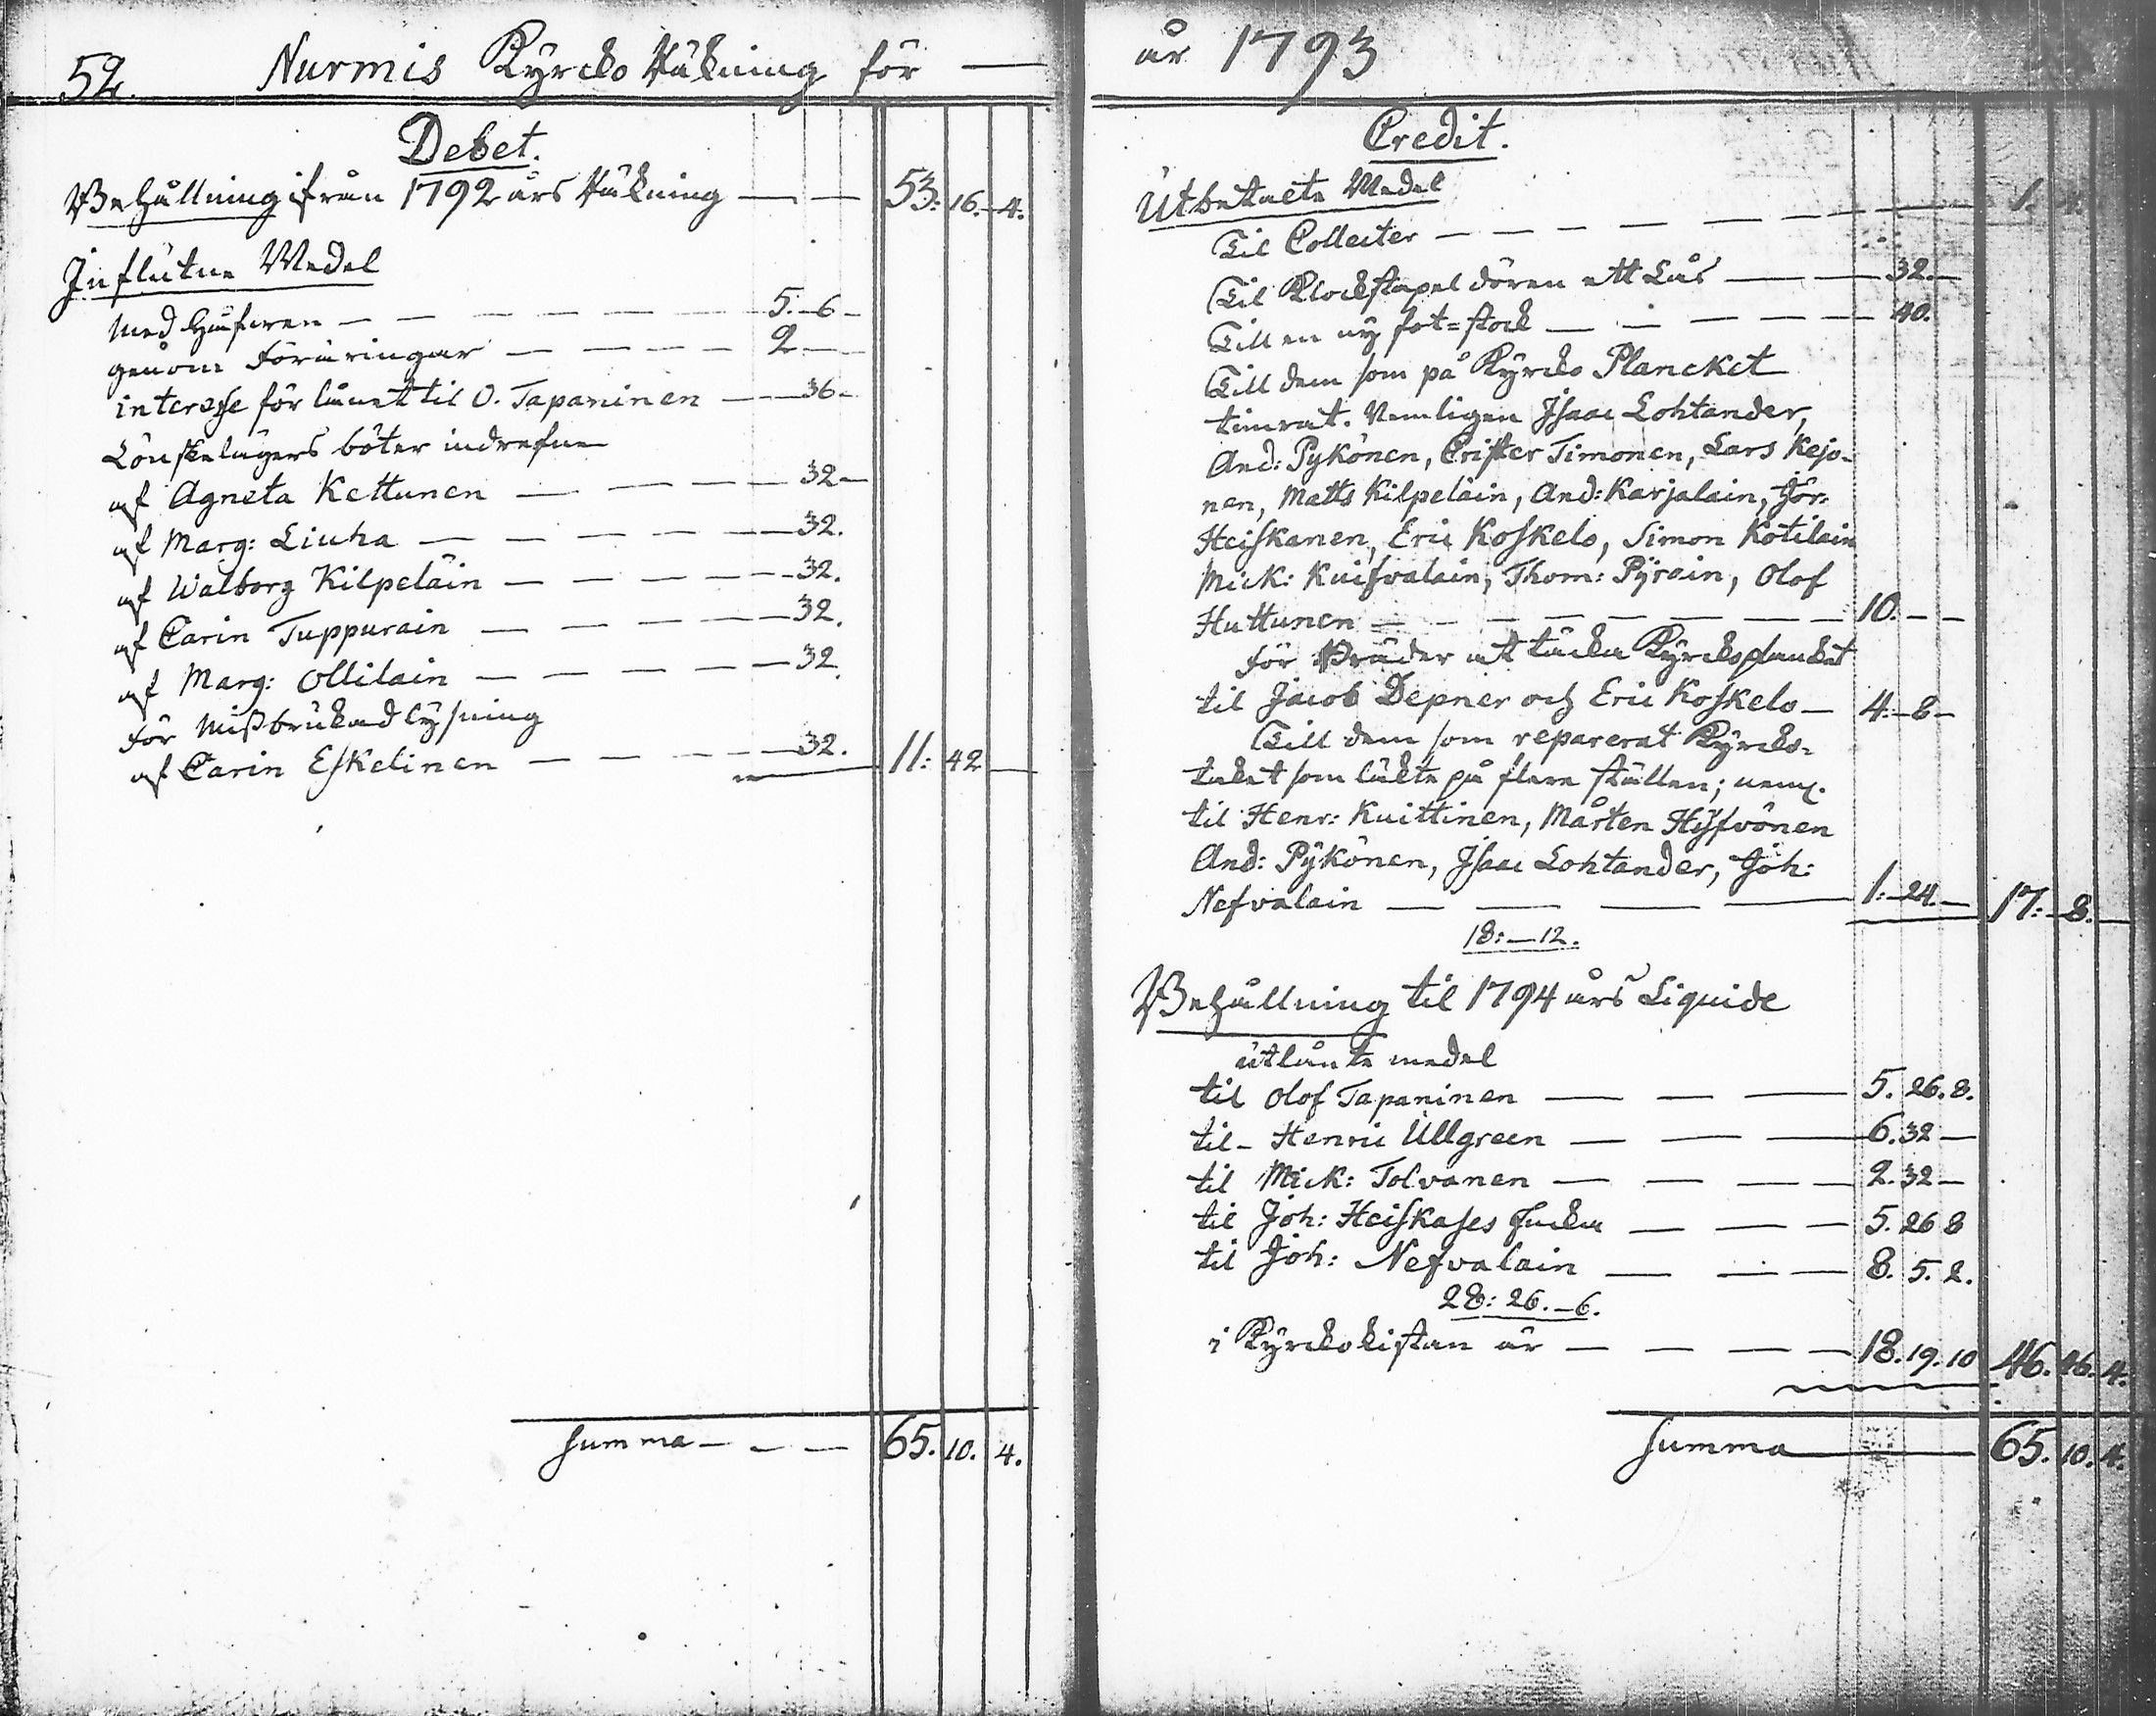 52. Nurmis Kyrcko Räkning för —
Debet.
Behållning ifrån 1792 års Räkning — — 53. 16. 4.
Influtne Medel
Med Håfwen — — — — — 5. 6 —
genom Föräringar — — — — 2 —
interesse för lånet til O. Tapaninen — 36 —
Lönskelägers böter indrefne
af Agneta Kettunen — — — — 32 —
af Marg: Liuha — — — — — 32.
af Walborg Kilpeläin — — — — 32.
af Carin Tuppurain — — — — 32.
af Marg: Ollilain — — — — 32.
För Missbrukad lysning
af Carin Eskelinen — — — — 32. 11: 42 —
Summa — — — 65. 10. 4.
år 1793
Credit.
Utbetalte Medel
Til Collecter — — — — — — — 1. 4.
Til Klockstapel dören ett Lås — — 32. —
Till en ny fot=stock — — — — — 40.
Till dem som på Kyrcko Plancket
timrat. Nemligen Isaac Lohtander,
And: Pykönen, Crister Timonen, Lars Kejo-
nen, Matts Kilpeläin, And: Karjalain, Gör.
Heiskanen, Eric Koskelo, Simon Kotilain
Mick: Kuifvalain, Thom: Pyrain, Olof
Huttunen — — — — — — — 10. — —
För Bräder at täcka Kyrckoplanket
til Jacob Depner och Eric Koskelo — 4. 8 —
Till dem som reparerat Kyrcko-
taket som läkte på flere ställen; neml.
til Henr: Kuittinen, Mårten Hyfvönen
And: Pykönen, Isaac Lohtander, Joh:
Nefvalain — — — — 1. 24. — 17. 8. —
18: — 12.
Behållning til 1794 års Liquide
utlånte medel
til Olof Tapaninen — — — 5. 26. 8.
til — Henric Ullgreen — — — 6. 32 —
til Mick: Tolvanen — — — — 2. 32 —
til Joh: Heiskases Encka — — — 5. 26 8
til Joh: Nefvalain — — — 8. 5. 2.
28: 26. — 6.
i Kyrckokistan är — — — — 18. 19. 10 46. 46. 4.
Summa — 65. 10. 4.